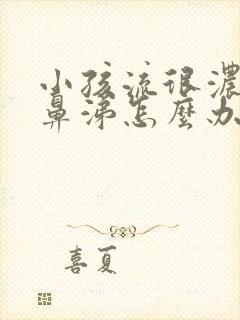 小孩流很濃
鼻涕怎麼办
喜夏